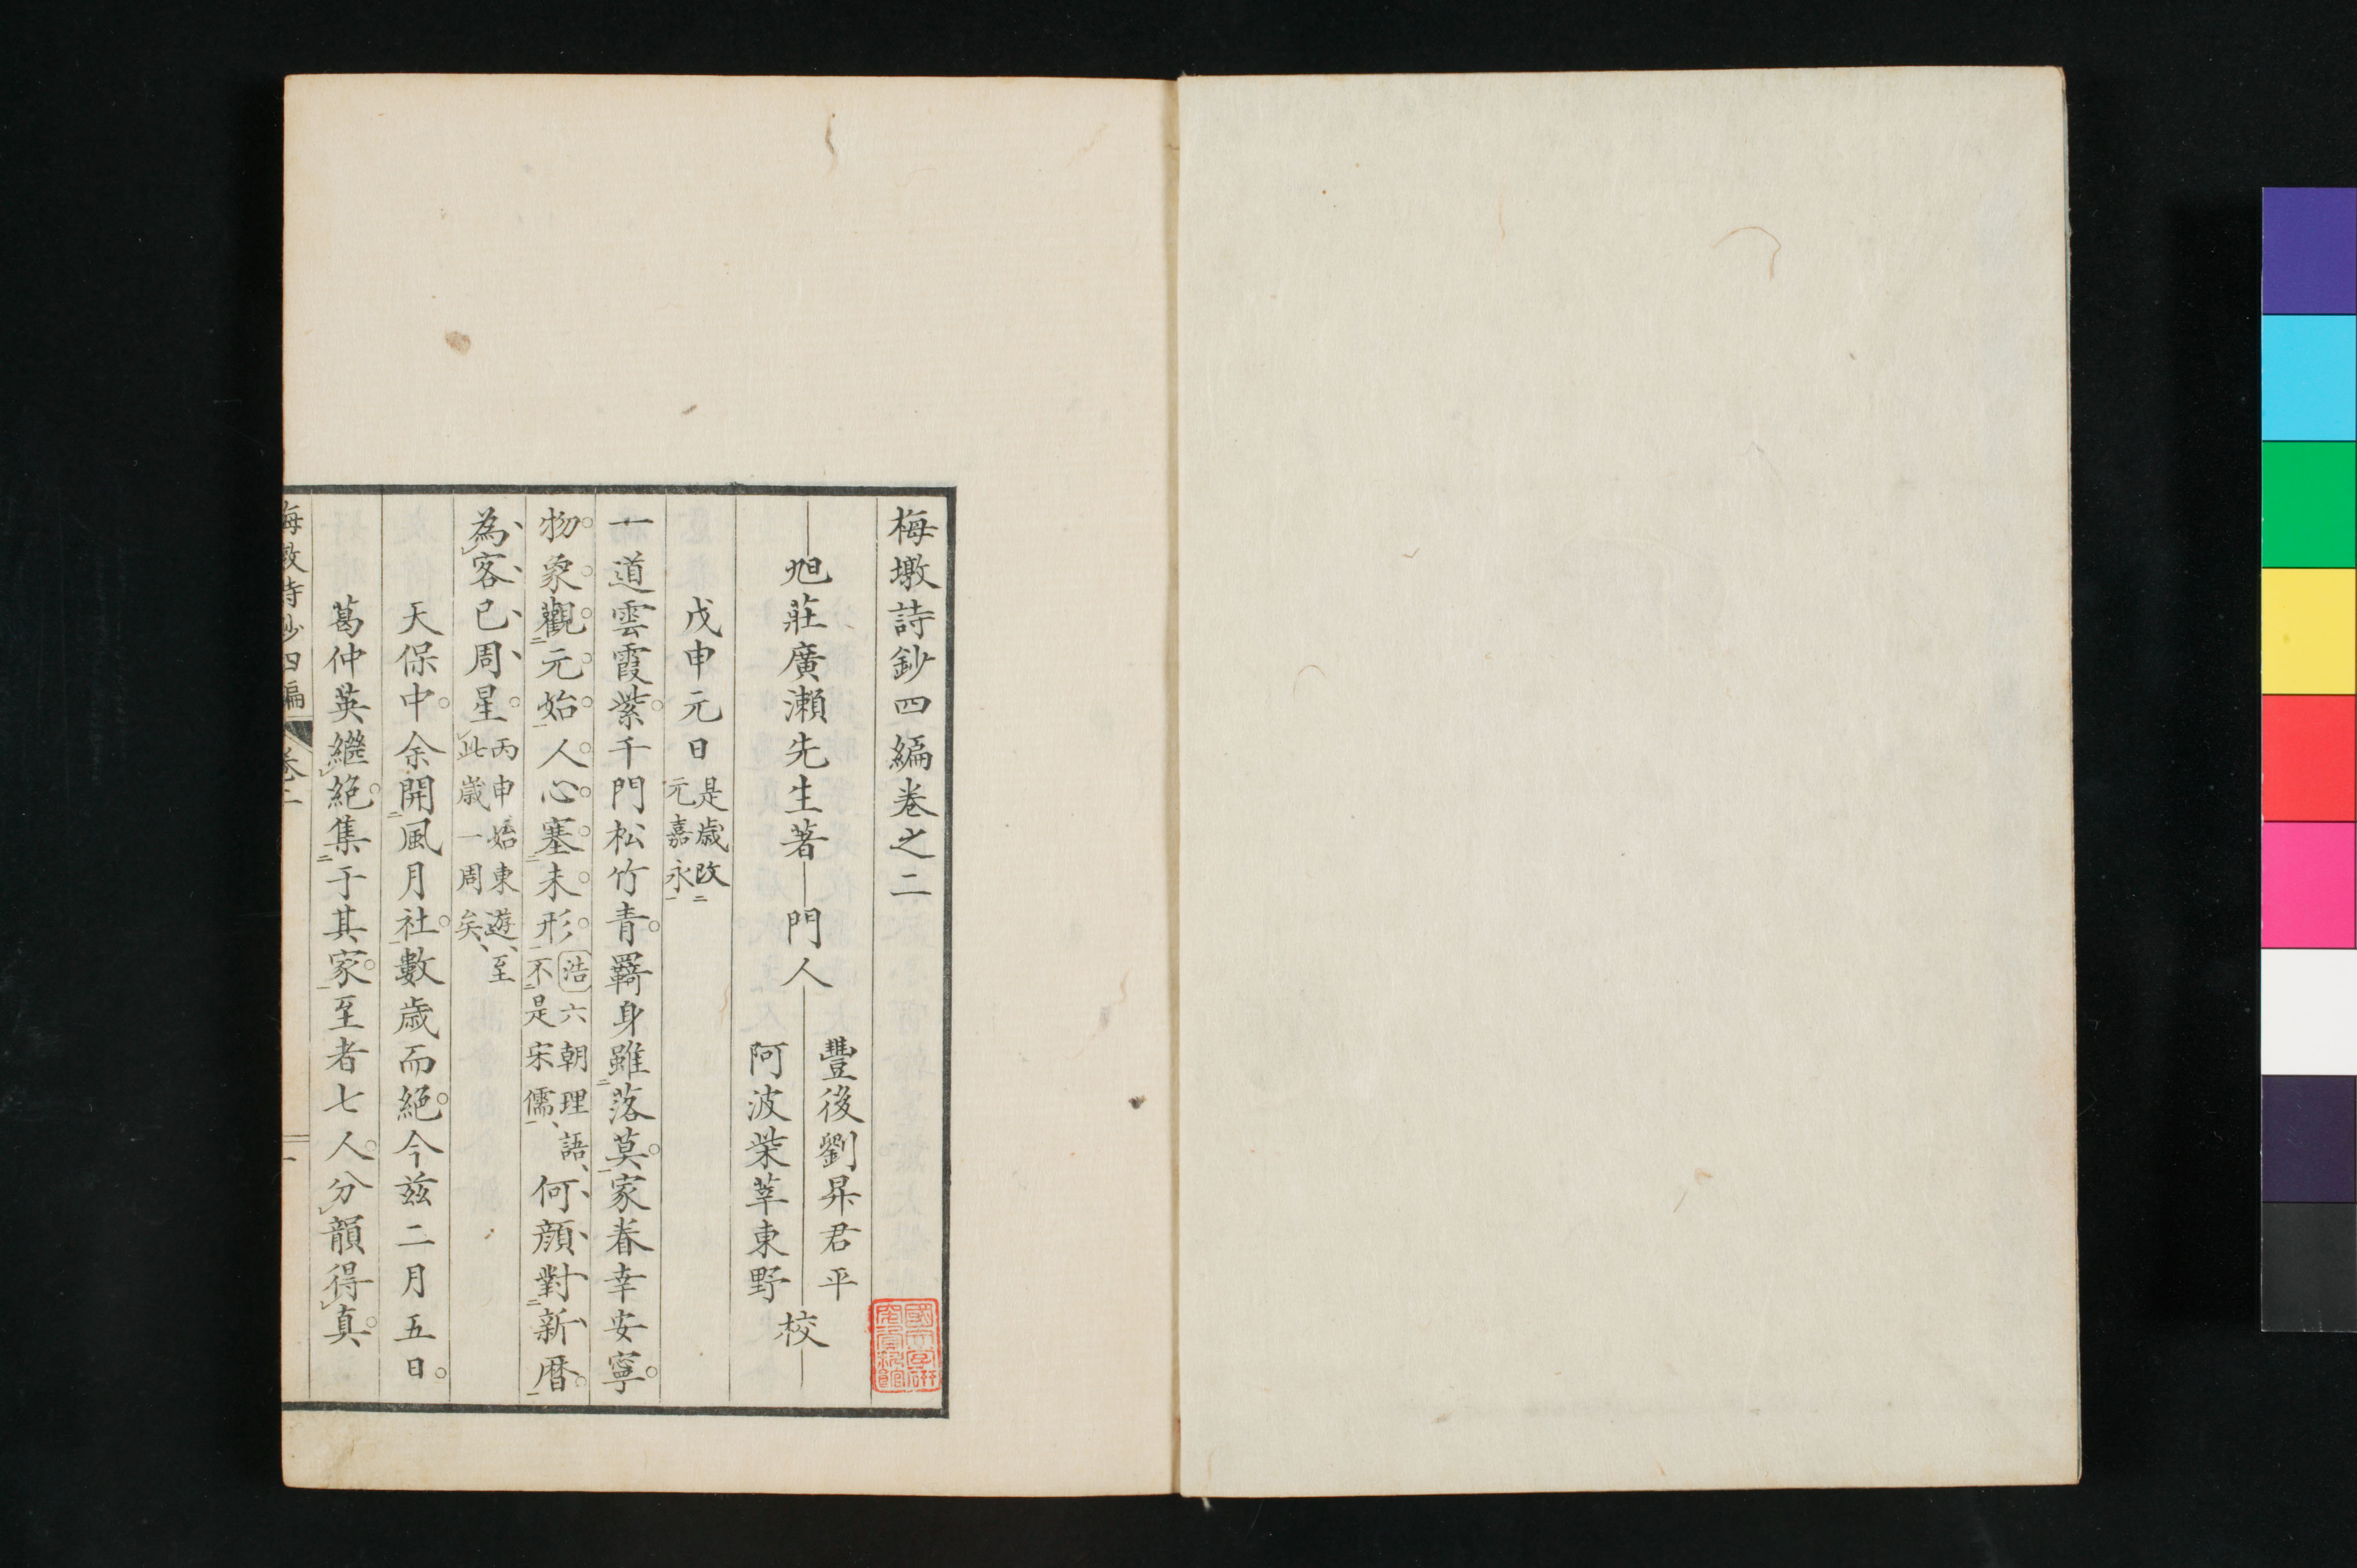 梅墩詩鈔四編卷之二
旭莊廣瀨先生著 門人 豐後劉昇君平 校
阿波柴莘東野
戊申元日 是歳改元嘉永
一道雲霞紫千門松竹青羇身雖落莫家眷幸安寧
物象觀元始人心塞未形 浩 六朝理語、不是宋儒、 何顏對新暦
為客已周星 丙申始東遊、至此歳一周矣、
天保中余開風月社數歳而絕今茲二月五日
葛仲英繼絕集于其家至者七人分韻得真
梅墩詩鈔四編 卷二 一